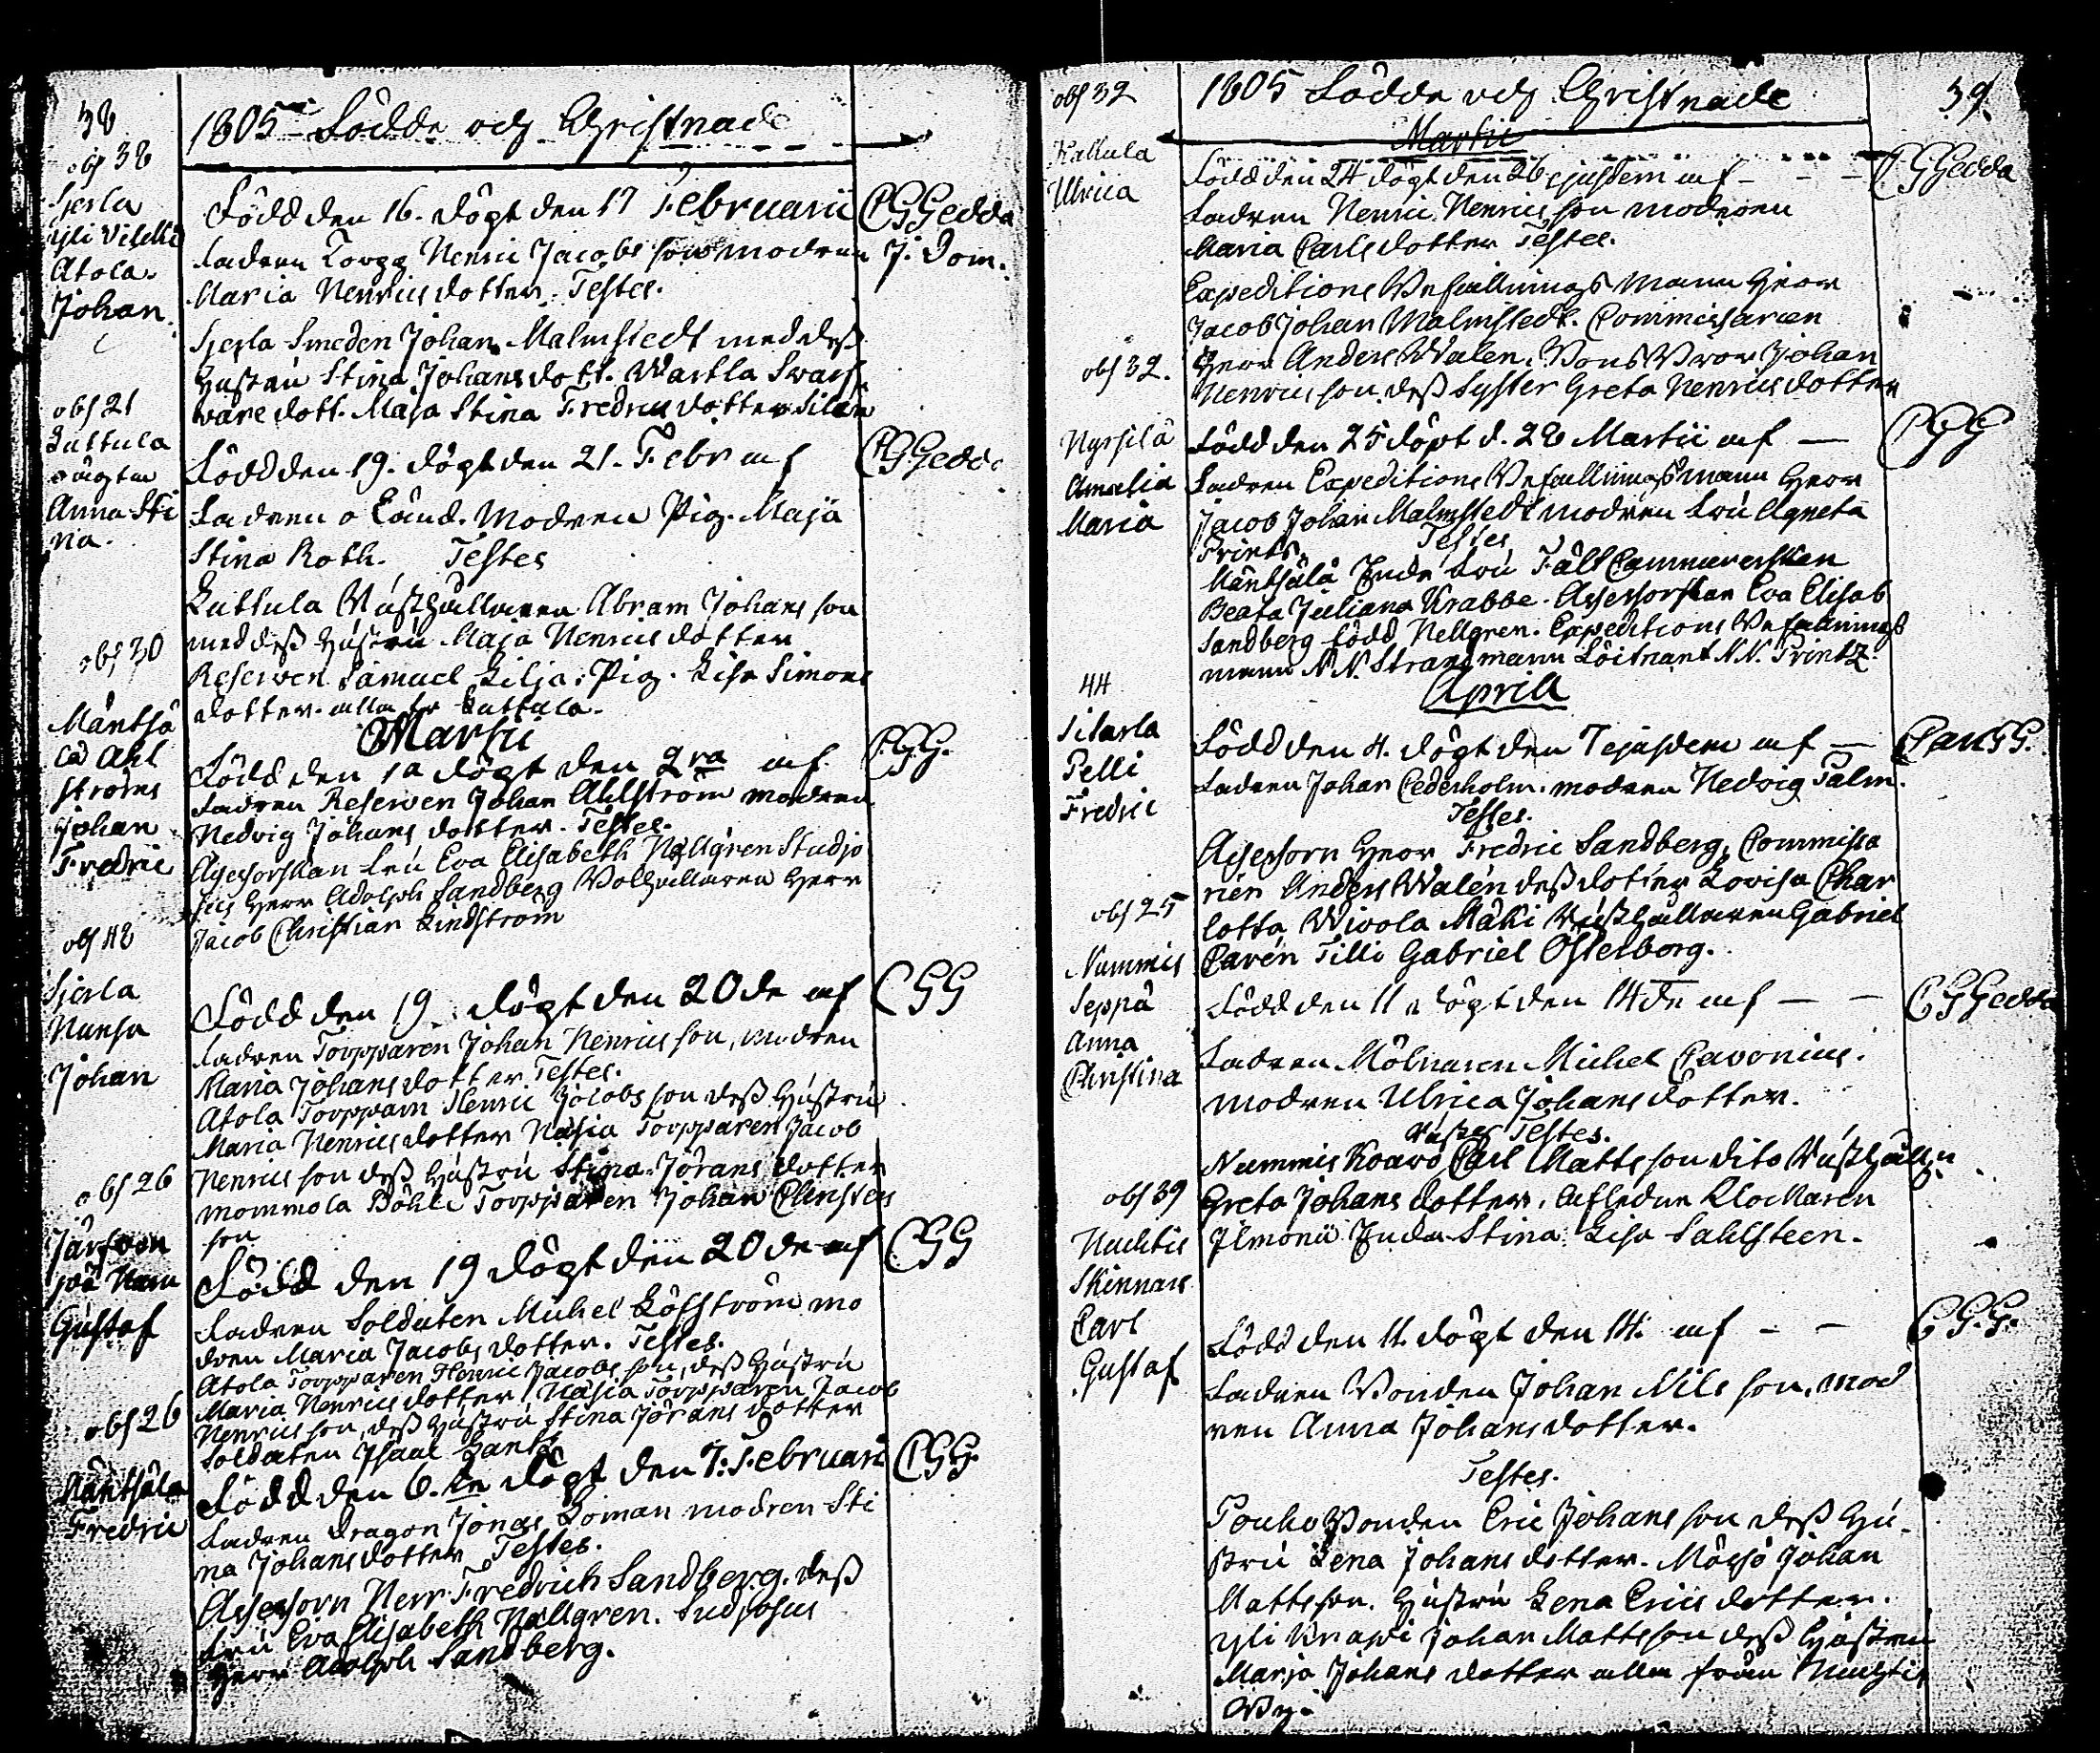 38
1805 Födde och Christnade
obs 38
Sjerla
Yli Viselld
Atola.
Johan.
Född den 16. döpt den 17 Februarii CGGedda
Fadren Torpp Henric Jacobs son modren J. Dom.
Maria Henrics dotter. Testes.
Sjerla Smeden Johan Malmstedt med dess
hustru Stina Johans dott. Wartla Swarf
ware dott. Maja Stina Fredrics dotter
obs 21
Luttula
Anna Sti
na.
Född den 19. döpt den 21. Febr af CGGedda
Fadren o känd. Modren Pig. Maja
Stina Roth. Testes
Luttula Rusthållaren Abram Johans son
med dess hustru Maja Henrics dotter
Reserven Samuel Lilja. Pig. Lisa Simons
dotter alla fr Luttula.
Martii
obs 30
Mäntsä
lä Ahl
ströms
Johan
Fredric
Född den 1a döpt den 2ra af CGG.
Fadren Reserven Johan Ahlström modren
Hedvig Johans dotter. Testes.
Assessorskan Fru Eva Elisabeth Nellgren Studjo
sus Herr Adolph Sandberg Bokhållaren Herr
Jacob Christian Lindström
obs 48
Sjerla
Nansa
Johan
Född den 19. döpt den 20de af CGG
Fadren Torpparen Johan Henrics son, modren
Maria Johans dotter Testes.
Atola Torpparn Henric Jacobs son dess hustru
Maria Henrics dotter Nasia Torpparen Jacob
Henrics son dess hustru Stina Jörans dotter
Mommola Böhle Torpparen Johan Christers
son
obs 26
Järfven
pää
Gustaf
Född den 19 döpt den 20de af CGG
Fadren Soldaten Michel Löfström mo
dren Maria Jacobs dotter. Testes.
Atola Torpparen Henric Jacobs son, dess hustru
Maria Henrics dotter, Nasia Torpparen Jacob
Henrics son, dess hustru Stina Jörans dotter
Soldaten Isaac
obs 26
Mäntsälä
Fredric
Född den 6.te döpt den 7. Februari CGG.
Fadren Dragon Jonas Loman modren Sti
na Johans dotter Testes.
Assessorn Herr Fredrich Sandberg. dess
Fru Eva Elisabeth Nellgren. Sudjosus
Herr Adolph Sandberg.
obs 32
1805 Födde och Christnade
39.
Martii
Kallula
Ulrica
Född den 24 döpt den 26 ejusdem af - - - CGGedda
Fadren Henric Henrics son modren
Maria Carls dotter Testes.
Expeditions Befallnings Mann Herr
Jacob Johan Malmstedt. Commissarien
Herr Anders Walen. Bonds Bror Johan
Henrics son, dess Syster Greta Henrics dotter
obs 32.
Nyrsilä
Amalia
Maria
Född den 25 döpt d. 28 Martii af — CGG
Fadren Expeditions Befallningsmann Herr
Jacob Johan Malmstedt modren Fru Agneta
Printz. Testes
Mäntsälä Enke Fru Fält Cammererskan
Beata Juliana Krabbe. Assessorskan Eva Elisab
Sandberg född Nellgren. Expeditions Befallnings
mann N.N. Strandmann Löitnant N.N. Printz.
Aprill
44
Silarla
Pelli
Fredric
Född den 4. döpt den 7 ejusdem af — CGG.
Fadren Johan Cederholm. modren Hedvig Palm.
Testes.
Assessorn Herr Fredric Sandberg, Commissa
rien Anders Walén dess dotter Lovisa Char
lotta Wirola Mäki Rusthållaren Gabriel
Carén Tilli Gabriel Österborg.
obs 25
Nummis
Seppä
Anna
Christina
Född den 11 döpt den 14de af — — CGGedda
Fadren Mölnaren Michel Cavonius.
modren Ulrica Johans dotter.
Testes.
Nummis Roavo Carl Matts son dito Rusthåll
Greta Johans dotter. Afledne Klockaren
Ilmoni Enka Stina Lisa Sahlsteen.
obs 39
Nuchtis
Skinnars
Carl
Gustaf
Född den 11. döpt den 14. af - - CGG.
Fadren Bonden Johan Nils son, mod
ren Anna Johans dotter.
Testes.
Pouko Bonden Eric Johans son dess hu-
stru Lena Johans dotter. Mörsö Johan
Matts son. hustru Lena Erics dotter.
Yli Knapi Johan Matts son dess hustru
Marja Johans dotter alla från Nuchtis
By.